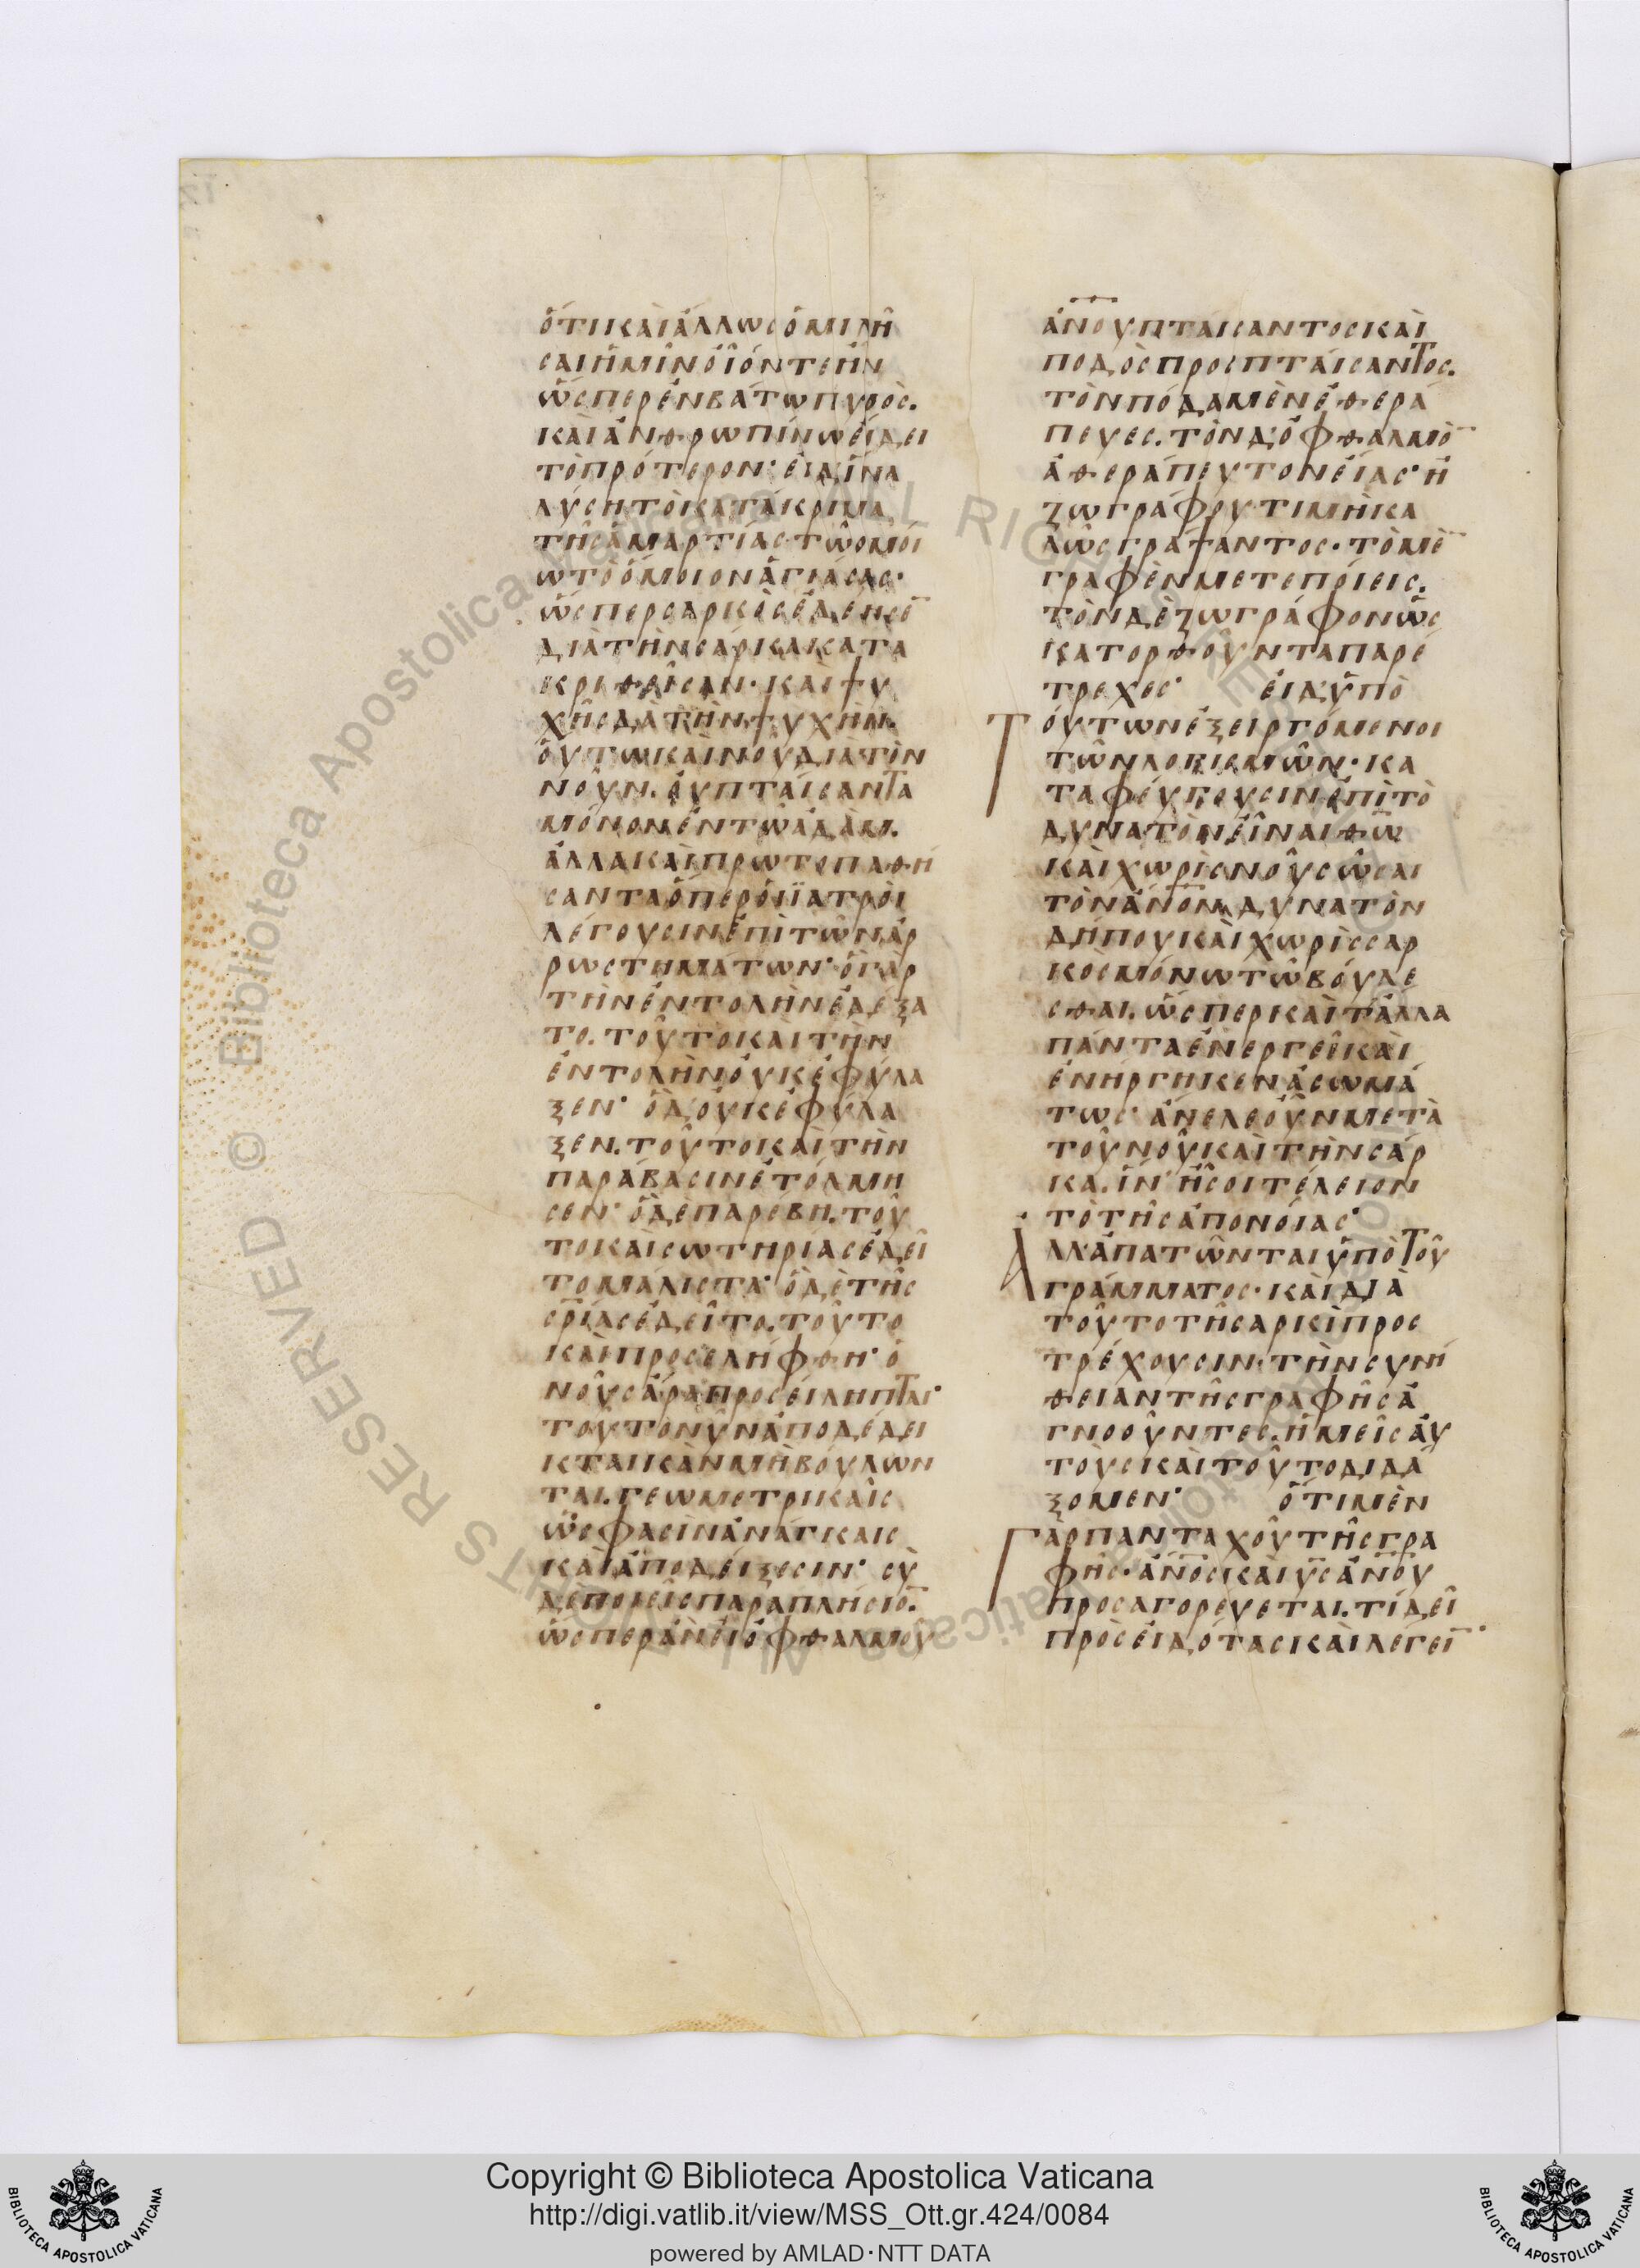 ὅτι καὶ ἄλλως ὁμιλῆ
σαι ἡμῖν οἷόν τε ἦν
ὥσπερ ἐν βάτω πυρὸς.
καὶ ἀνθρωπίνω εἴδει
τὸ πρότερον· εἰ δ' ἵνα
λύση τὸ κατάκριμα
τῆς ἁμαρτίας· τῶ ὁμοί
ω τὸ ὅμοιον ἁγιάσας·
ὥσπερ σαρκὸς ἐδέησε̅
διὰ τὴν σάρκα κατα
κριθεῖσαν· καὶ ψυ
χῆς διὰ τὴν ψυχὴν·
οὕτω καὶ νοῦ διὰ τὸν
νοῦν. οὐ πταίσαντα
μόνον ἐν τῶ ἀδὰμ.
ἀλλὰ καὶ πρωτοπαθή
σαντα ὅπερ οἱ ϊατροὶ
λέγουσιν ἐπὶ τῶν ἀρ
ρωστημάτων· ὃ γὰρ
τὴν ἐντολὴν ἐδέξα
το. τοῦτο καὶ τὴν
ἐντολὴν οὐκ ἐφύλα
ξεν· ὃ δ' οὐκ ἐφύλα
ξεν. τοῦτο καὶ τὴν
παράβασιν ἐτόλμη
σεν· ὃ δὲ παρέβη. τοῦ
το καὶ σωτηρίας ἐδεῖ
το μάλιστα· ὃ δὲ τῆς
σ̅ρ̅ίας ἐδεῖτο. τοῦτο
καὶ προσελήφθη· ὁ
νοῦς ἄρα προσείληπται·
τοῦτο νῦν ἀποδέδει
κται κἂν μὴ βούλων
ται. γεωμετρικαῖς
ὥς φασὶν ἀνάγκαις
καὶ ἀποδείξεσιν· σὺ
δὲ ποιεῖς παραπλήσιο̅.
ὥσπερ ἂν εἰ ὀφθαλμοῦ
ἀ̅ν̅ο̅υ̅ πταίσαντος καὶ
ποδὸς προσπταίσαντος.
τὸν πόδα μὲν ἐθερά
πευες. τὸν δ' ὀφθαλμὸ̅
ἀθεράπευτον εἴας· ἢ
ζωγράφου τι μὴ κα
λῶς γράψαντος· τὸ μὲ̅
γραφὲν μετεποίεις.
τὸν δὲ ζωγράφον ὡς
κατορθοῦντα παρέ
τρεχες· εἰ δ' ὑπὸ
Τούτων ἐξειργόμενοι
τῶν λογισμῶν· κα
ταφεύγουσιν ἐπὶ τὸ
δυνατὸν εἶναι θ̅ω̅
καὶ χωρὶς νοῦ σῶσαι
τὸν ἄ̅ν̅ο̅ν̅. δυνατὸν
δήπου καὶ χωρὶς σαρ
κὸς μόνω τῶ βούλε
σθαι. ὥσπερ καὶ τἄλλα
πάντα ἐνεργεῖ καὶ
ἐνήργηκεν ἀσωμά
τως· ἄνελε οὖν μετὰ
τοῦ νοῦ καὶ τὴν σάρ
κα. ἵν' ἦ σοι τέλειον
τὸ τῆς ἀπονοίας·
Ἀλλ' ἀπατῶνται ὑπὸ τοῦ
γράμματος· καὶ διὰ
τοῦτο τῆ σαρκὶ προς
τρέχουσιν· τὴν συνή
θειαν τῆς γραφῆς ἀ
γνοοῦντες. ἡμεῖς αὐ
τοὺς καὶ τοῦτο διδά
ξομεν· ὅτι μὲν
Γὰρ πανταχοῦ τῆς γρα
φῆς· ἄ̅ν̅ο̅ς̅ καὶ υ̅ς̅ ἀ̅ν̅ο̅υ̅
προσαγορεύεται. τί δεῖ
πρὸς εἰδότας καὶ λέγει̅
Copyright © Biblioteca Apostolica Vaticana
http://digi.vatlib.it/view/MSS_Ott.gr.424/0084
powered by AMLAD·NTT DATA
BIBLIOTECA APOSTOLICA VATICANA
BIBLIOTECA APOSTOLICA VATICANA